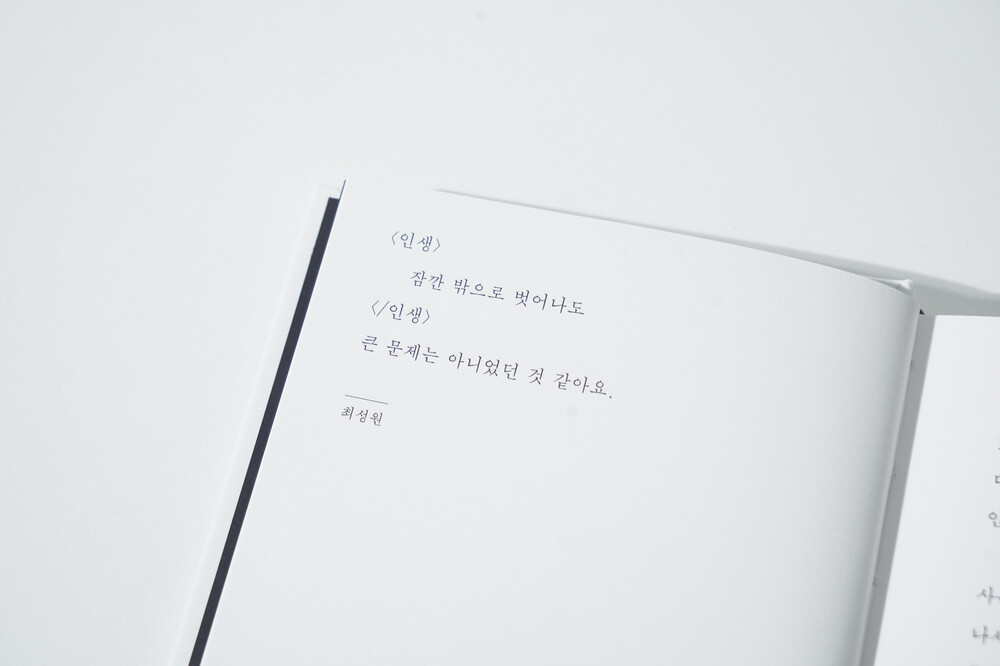 <인생>
잠깐 밖으로 벗어나도
</인생>
큰 문제는 아니었던 것 같아요.
최성원